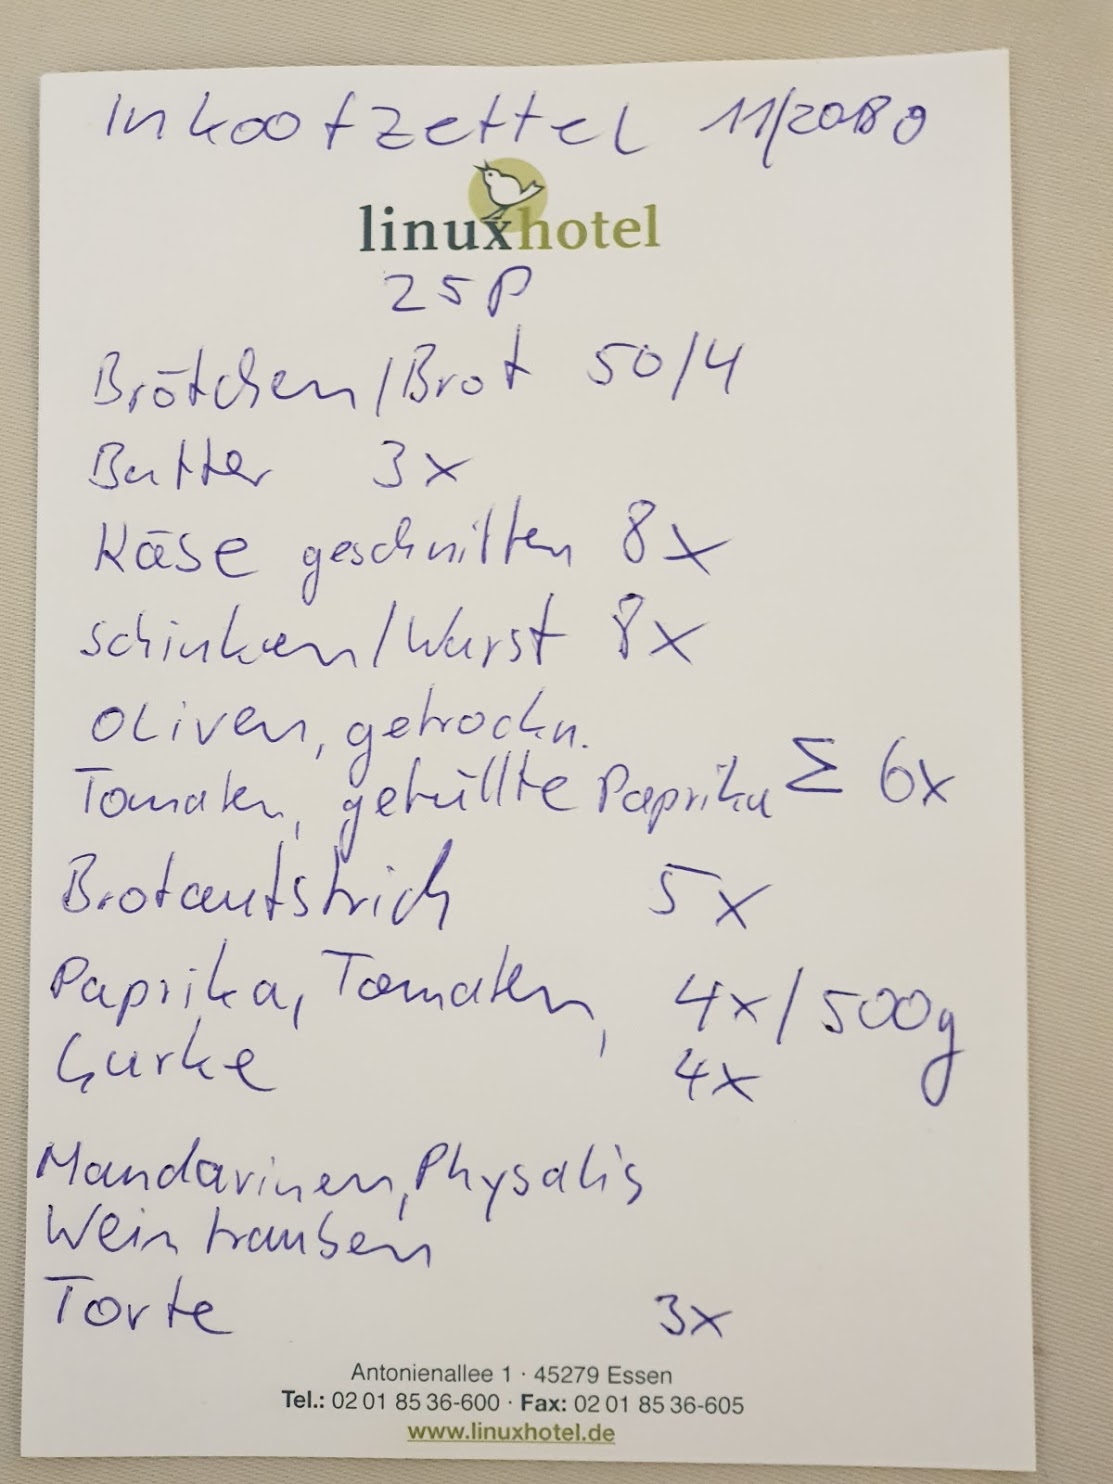 Inkoofzettel 11/2018 0
linuxhotel
25P
Brötchen/Brot 50/4
Butter 3x
Käse geschnitten 8x
Schinken/Wurst 8x
Oliven, getrockn.
Tomaten, gefüllte Paprika Σ 6x
Brotaufstrich 5x
Paprika, Tomaten, 4x/500g
Gurke 4x
Mandarinen, Physalis
Weintrauben
Torte 3x
Antonienallee 1 · 45279 Essen
Tel.: 02 01 85 36-600 · Fax: 02 01 85 36-605
www.linuxhotel.de